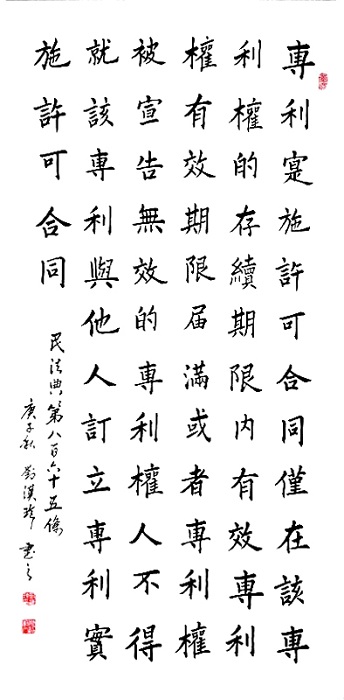 專利寔施許可合同僅在該專
利權的存續期限内有效專利
權有效期限届滿或者專利權
被宣告無效的專利權人不得
就該專利與他人訂立專利實
施許可合同
民法典第八百六十五條
庚子秋 書之